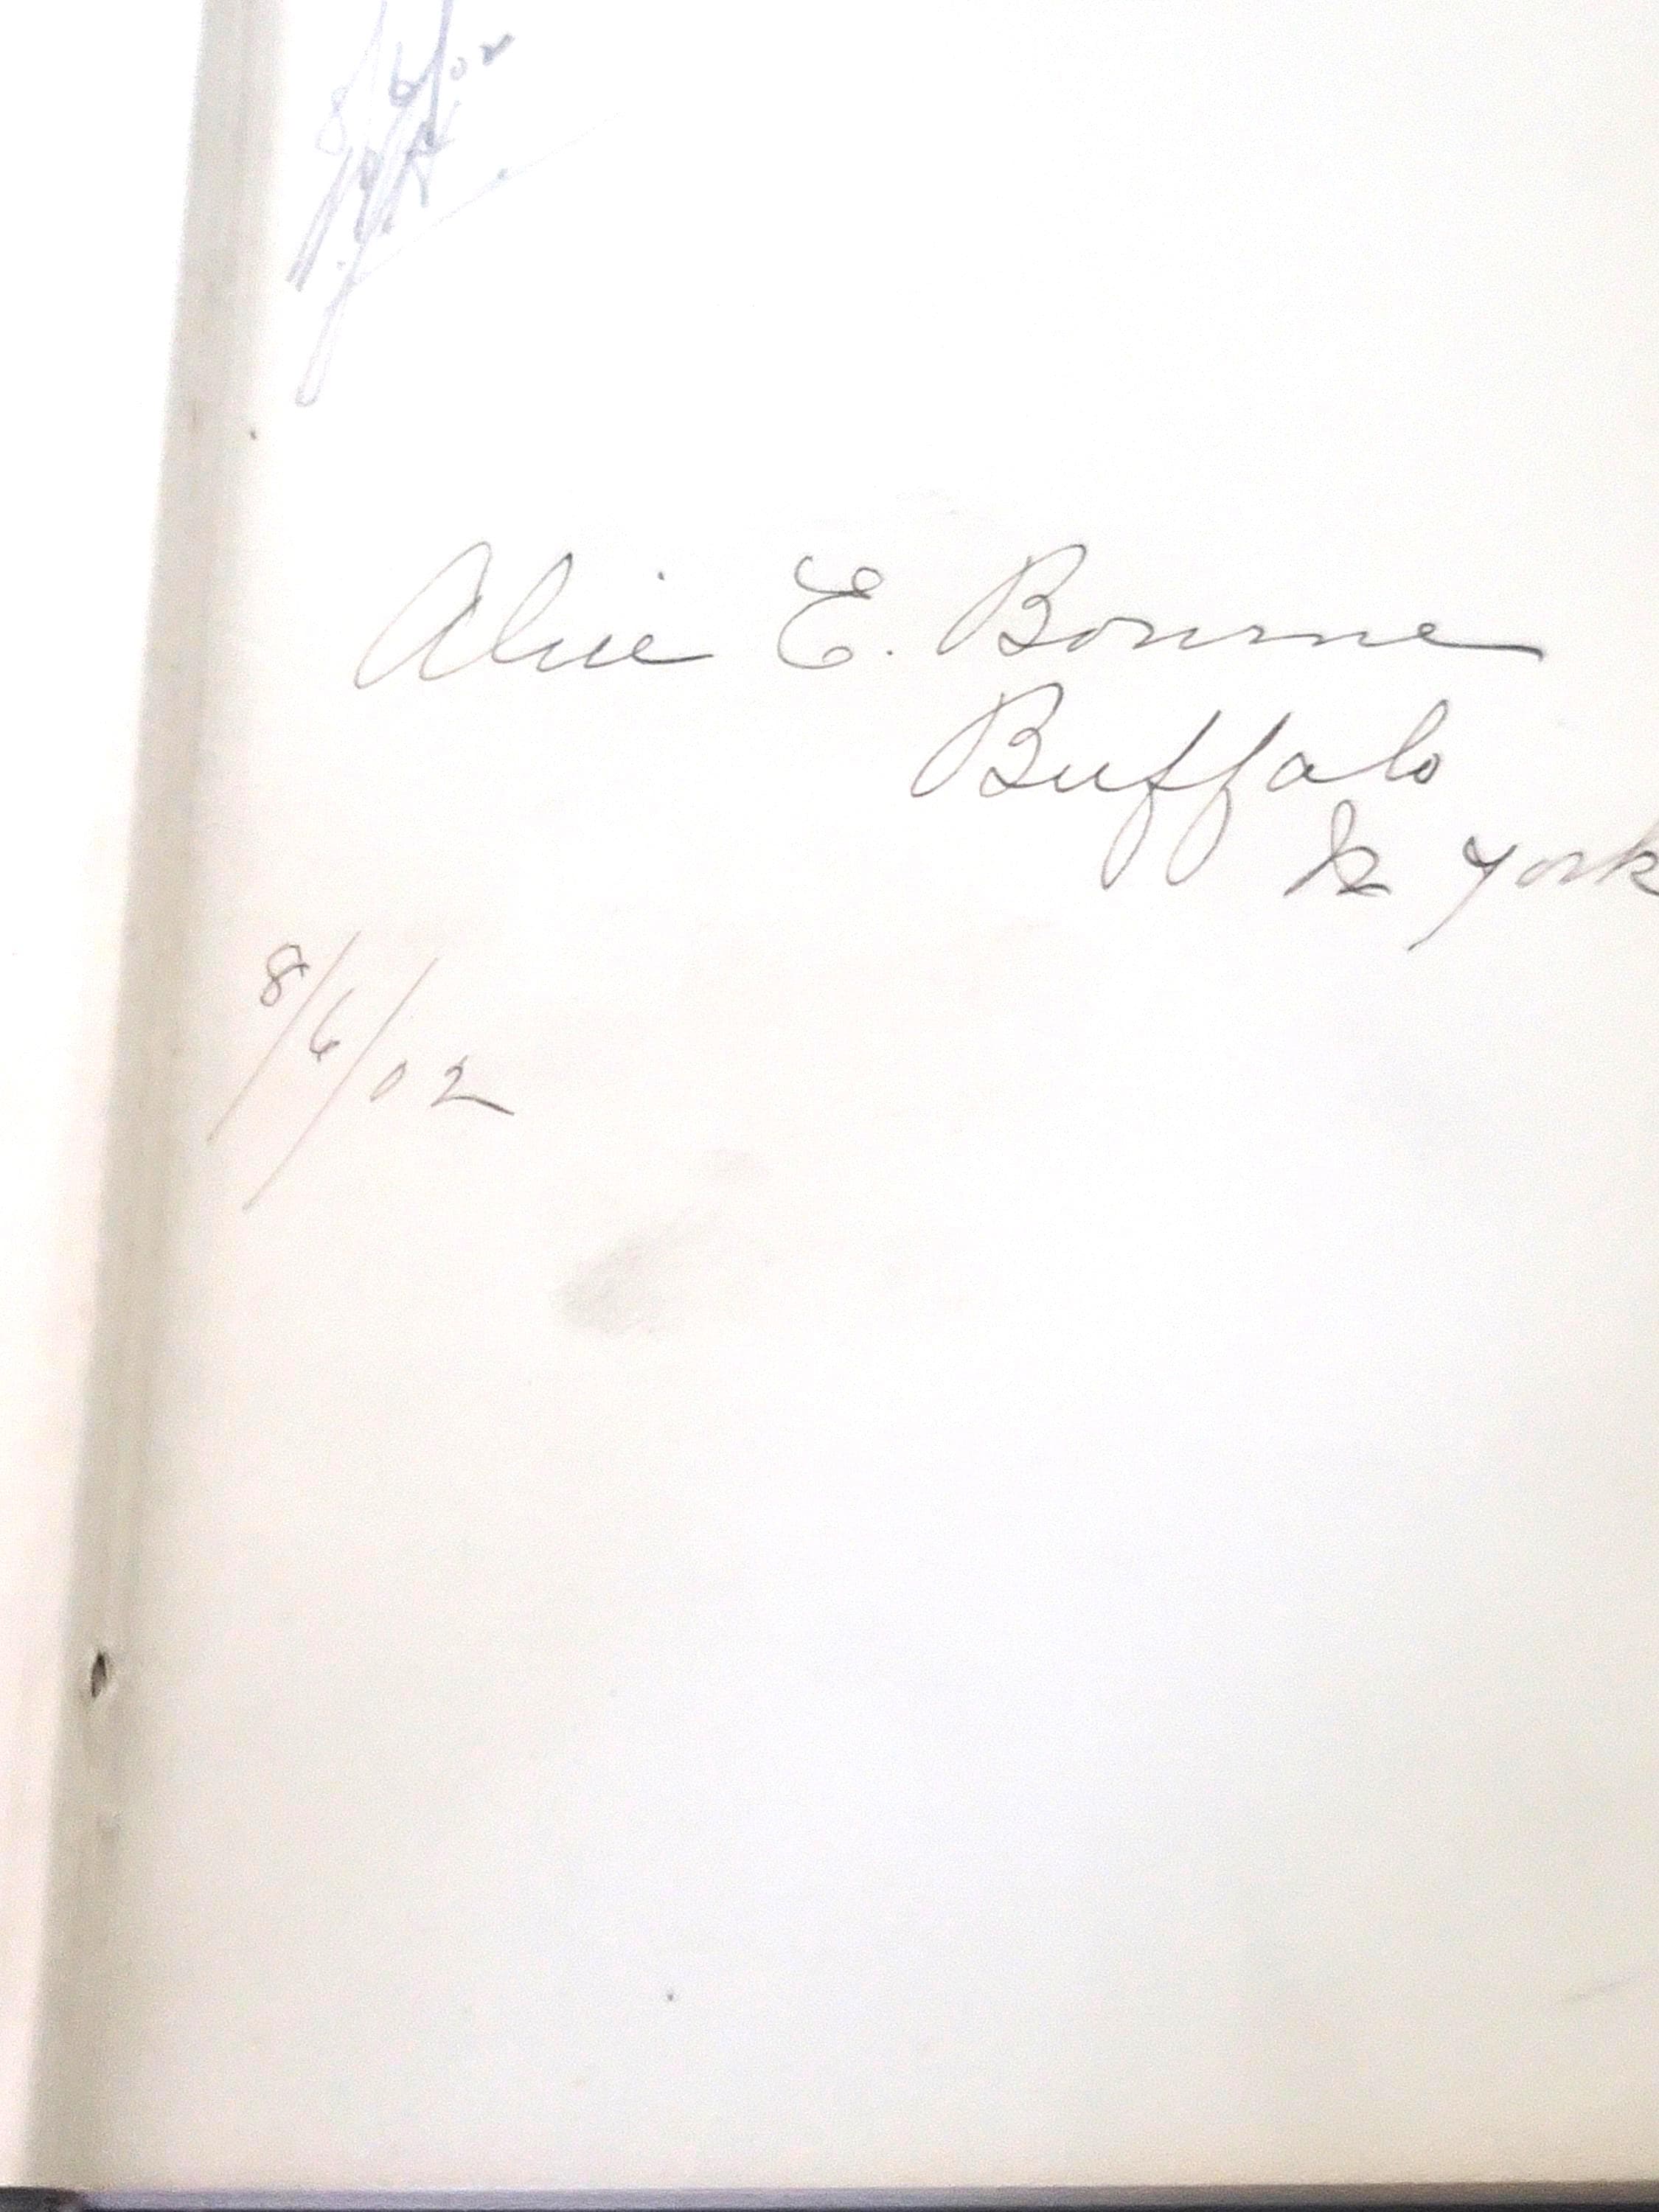 8/6/02
Alice E. Bourne
Buffalo
N York
8/6/02